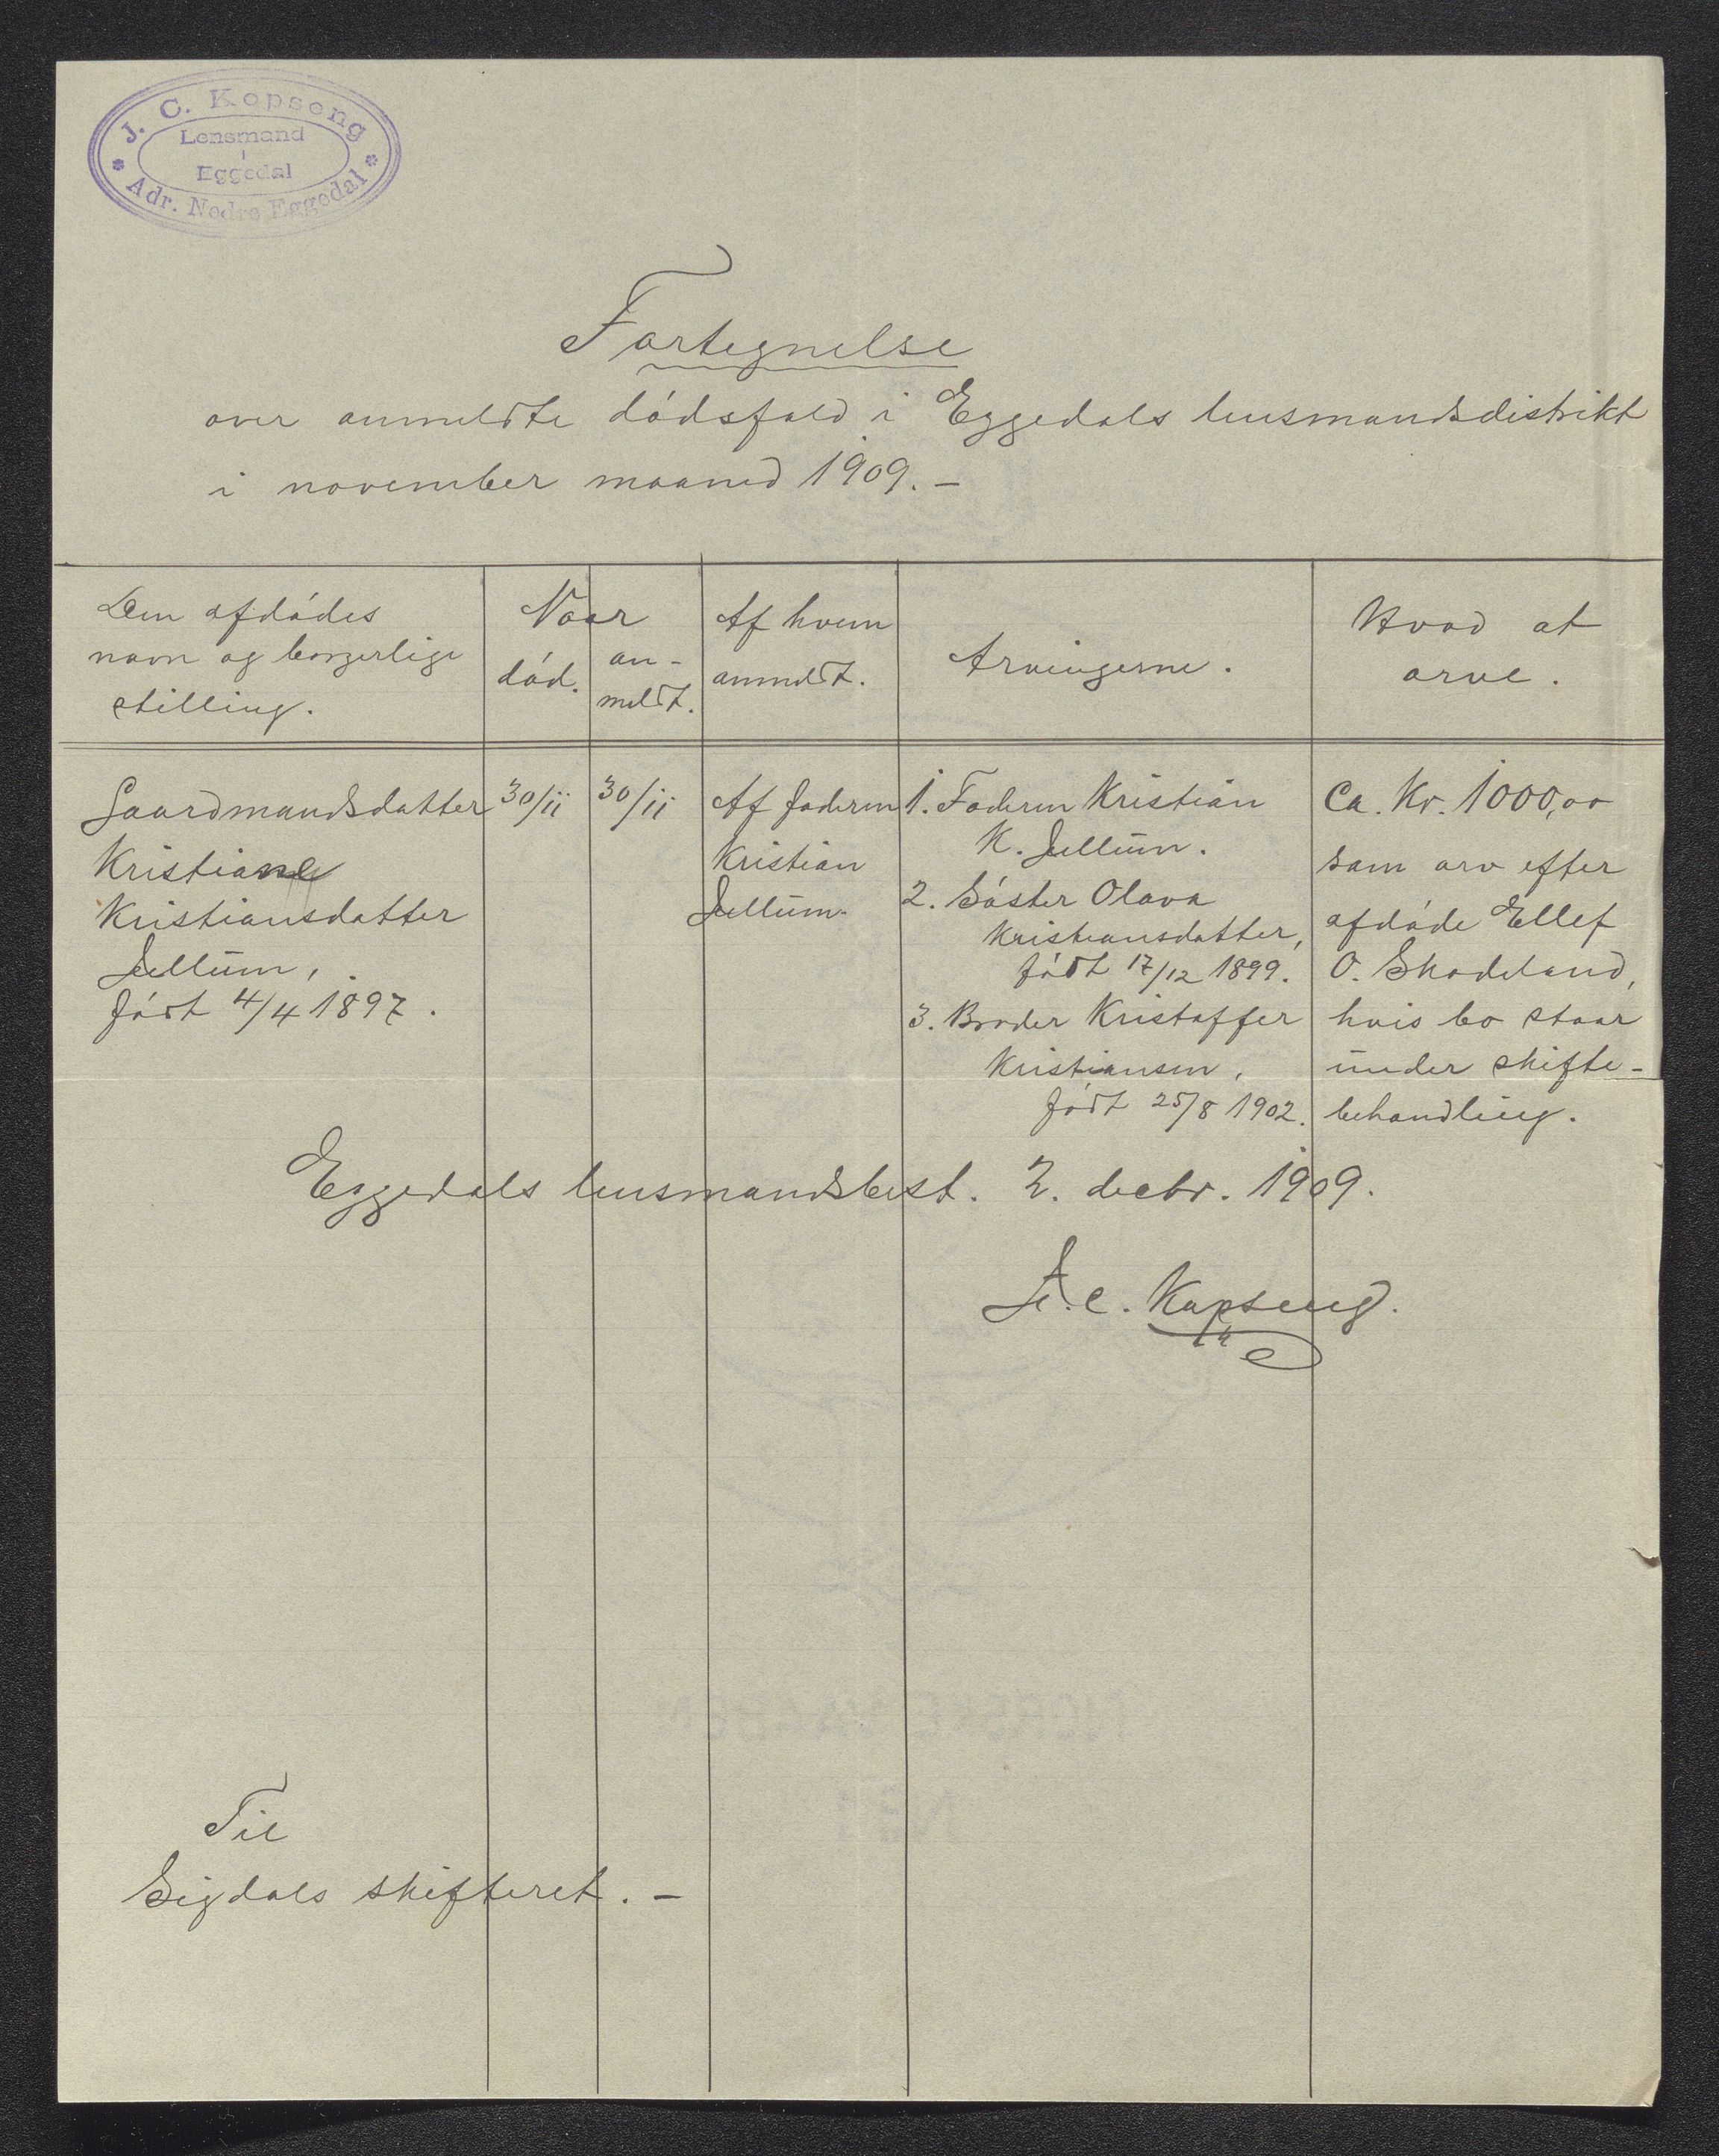 J. C. Kopseng
Lensmand
i
Eggedal
Adr. Nedre Eggedal
Fortegnelse
over anmeldte dódsfald i Eggedals lensmandsdistrikt
i november maaned 1909. –
Den afdódes
navn og borgerlige
stilling.
Naar
dód.
an-
meldt.
Af hvem
anmeldt.
Arvingerne.
Hvad at
arve.
Gaardmandsdatter
Kristiane
Kristiansdatter
Jellum,
fódt 4/4 1897.
30/11
30/11
Af faderen
Kristian
Jellum.
1. Faderen Kristian
K. Jellum.
2. Sóster Olava
Kristiansdatter,
fódt 17/12 1899.
3. Broder Kristoffer
Kristiansen,
fódt 25/8 1902.
Ca. Kr. 1000,00
som arv efter
afdóde Ellef
O. Skodeland,
hvis bo staar
under skifte-
behandling.
Eggedals lensmandsbest. 2. decbr. 1909.
J. C. Kopseng.
Til
Sigdals skifteret. –